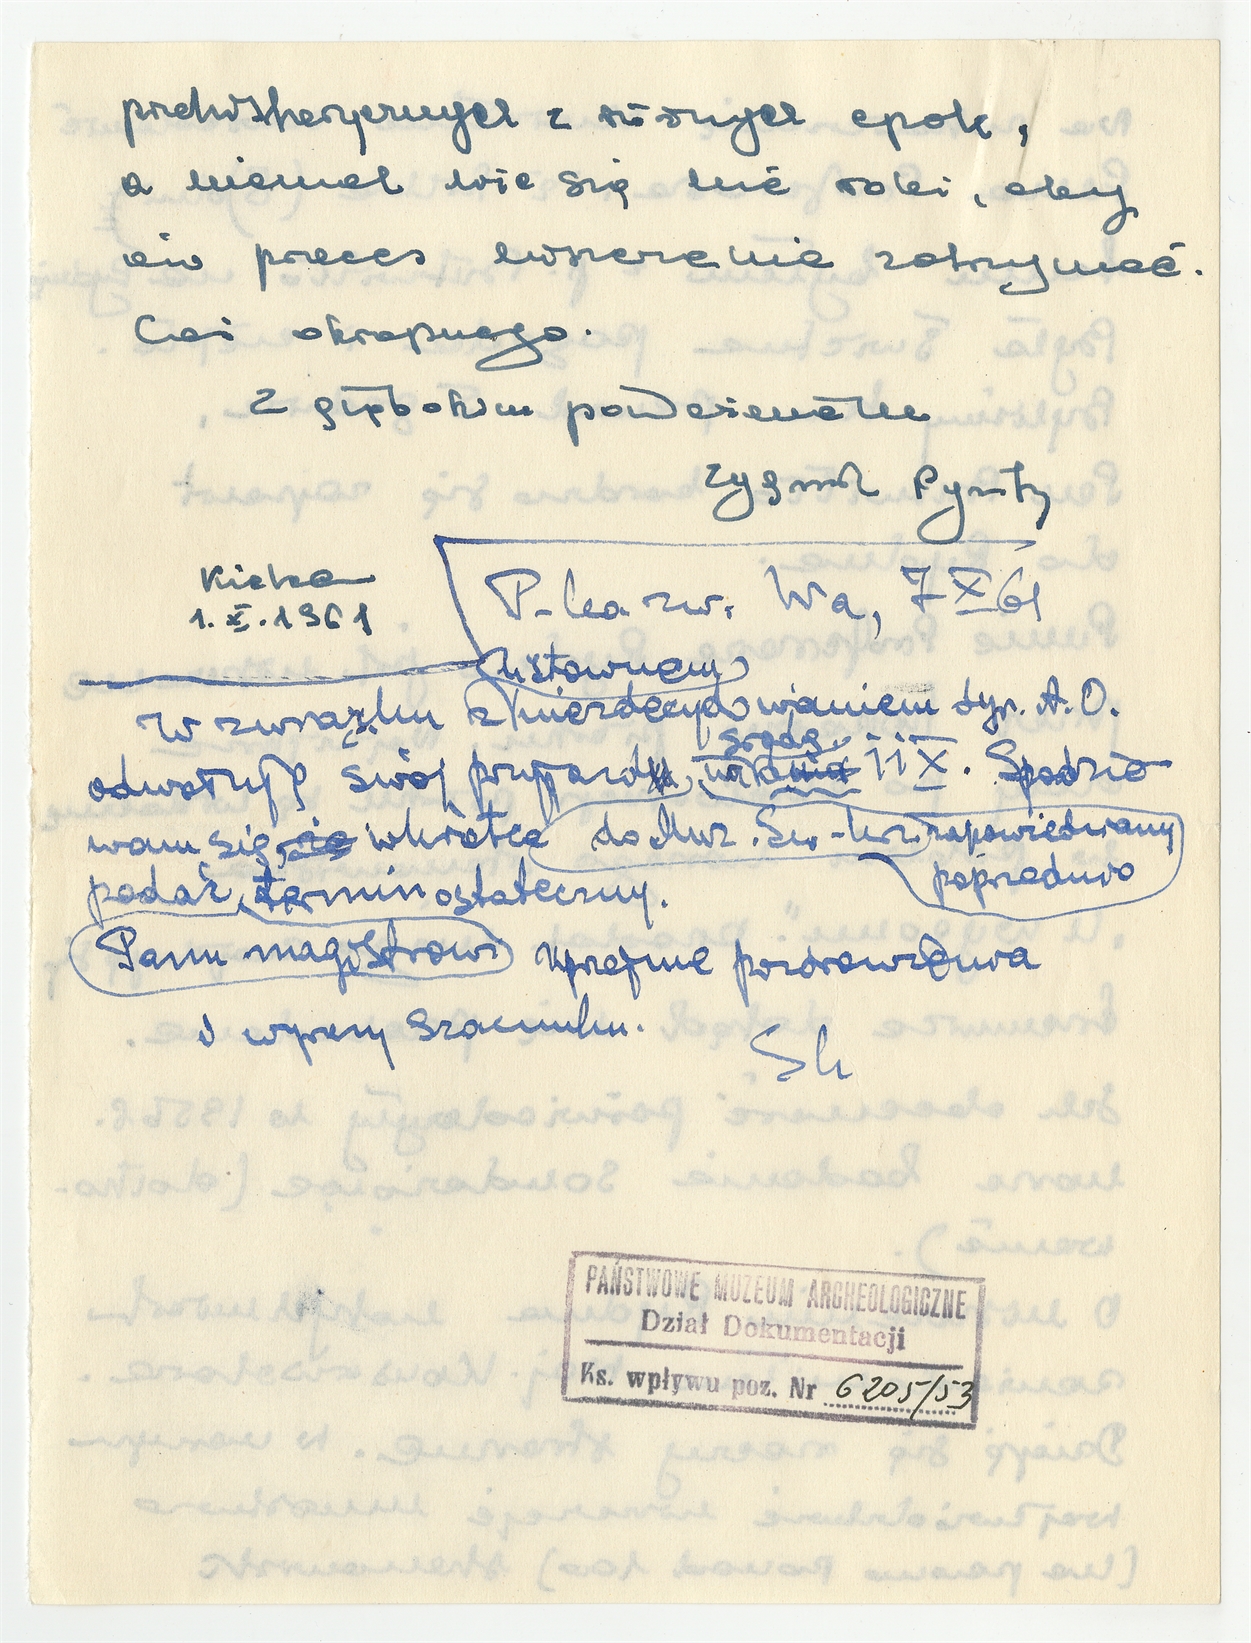 prehistorycznych z różnych epok,
a niemal wie się nic robi, aby
ów proces niszczenia zatrzymać.
Coś okropnego.
Z głębokim poważaniem
Zygmunt Pyzik
Kielce
1.X.1961
P-ka zw. Wa, 7 X 61
ustawnem
W związku z niezdecydowaniem dyr. A. O.
środę
odwołuję swój przyjazd 11 X. Spodzie
wam się, że wkrótce do Muz. Św-krz. zapowiedziany
poprzednio
podać termin ostateczny.
Panu magistrowi uprzejme pozdrowienia
i wyrazy szacunku.
PAŃSTWOWE MUZEUM ARCHEOLOGICZNE
Dział Dokumentacji
Ks. wpływu poz. Nr 6205/53